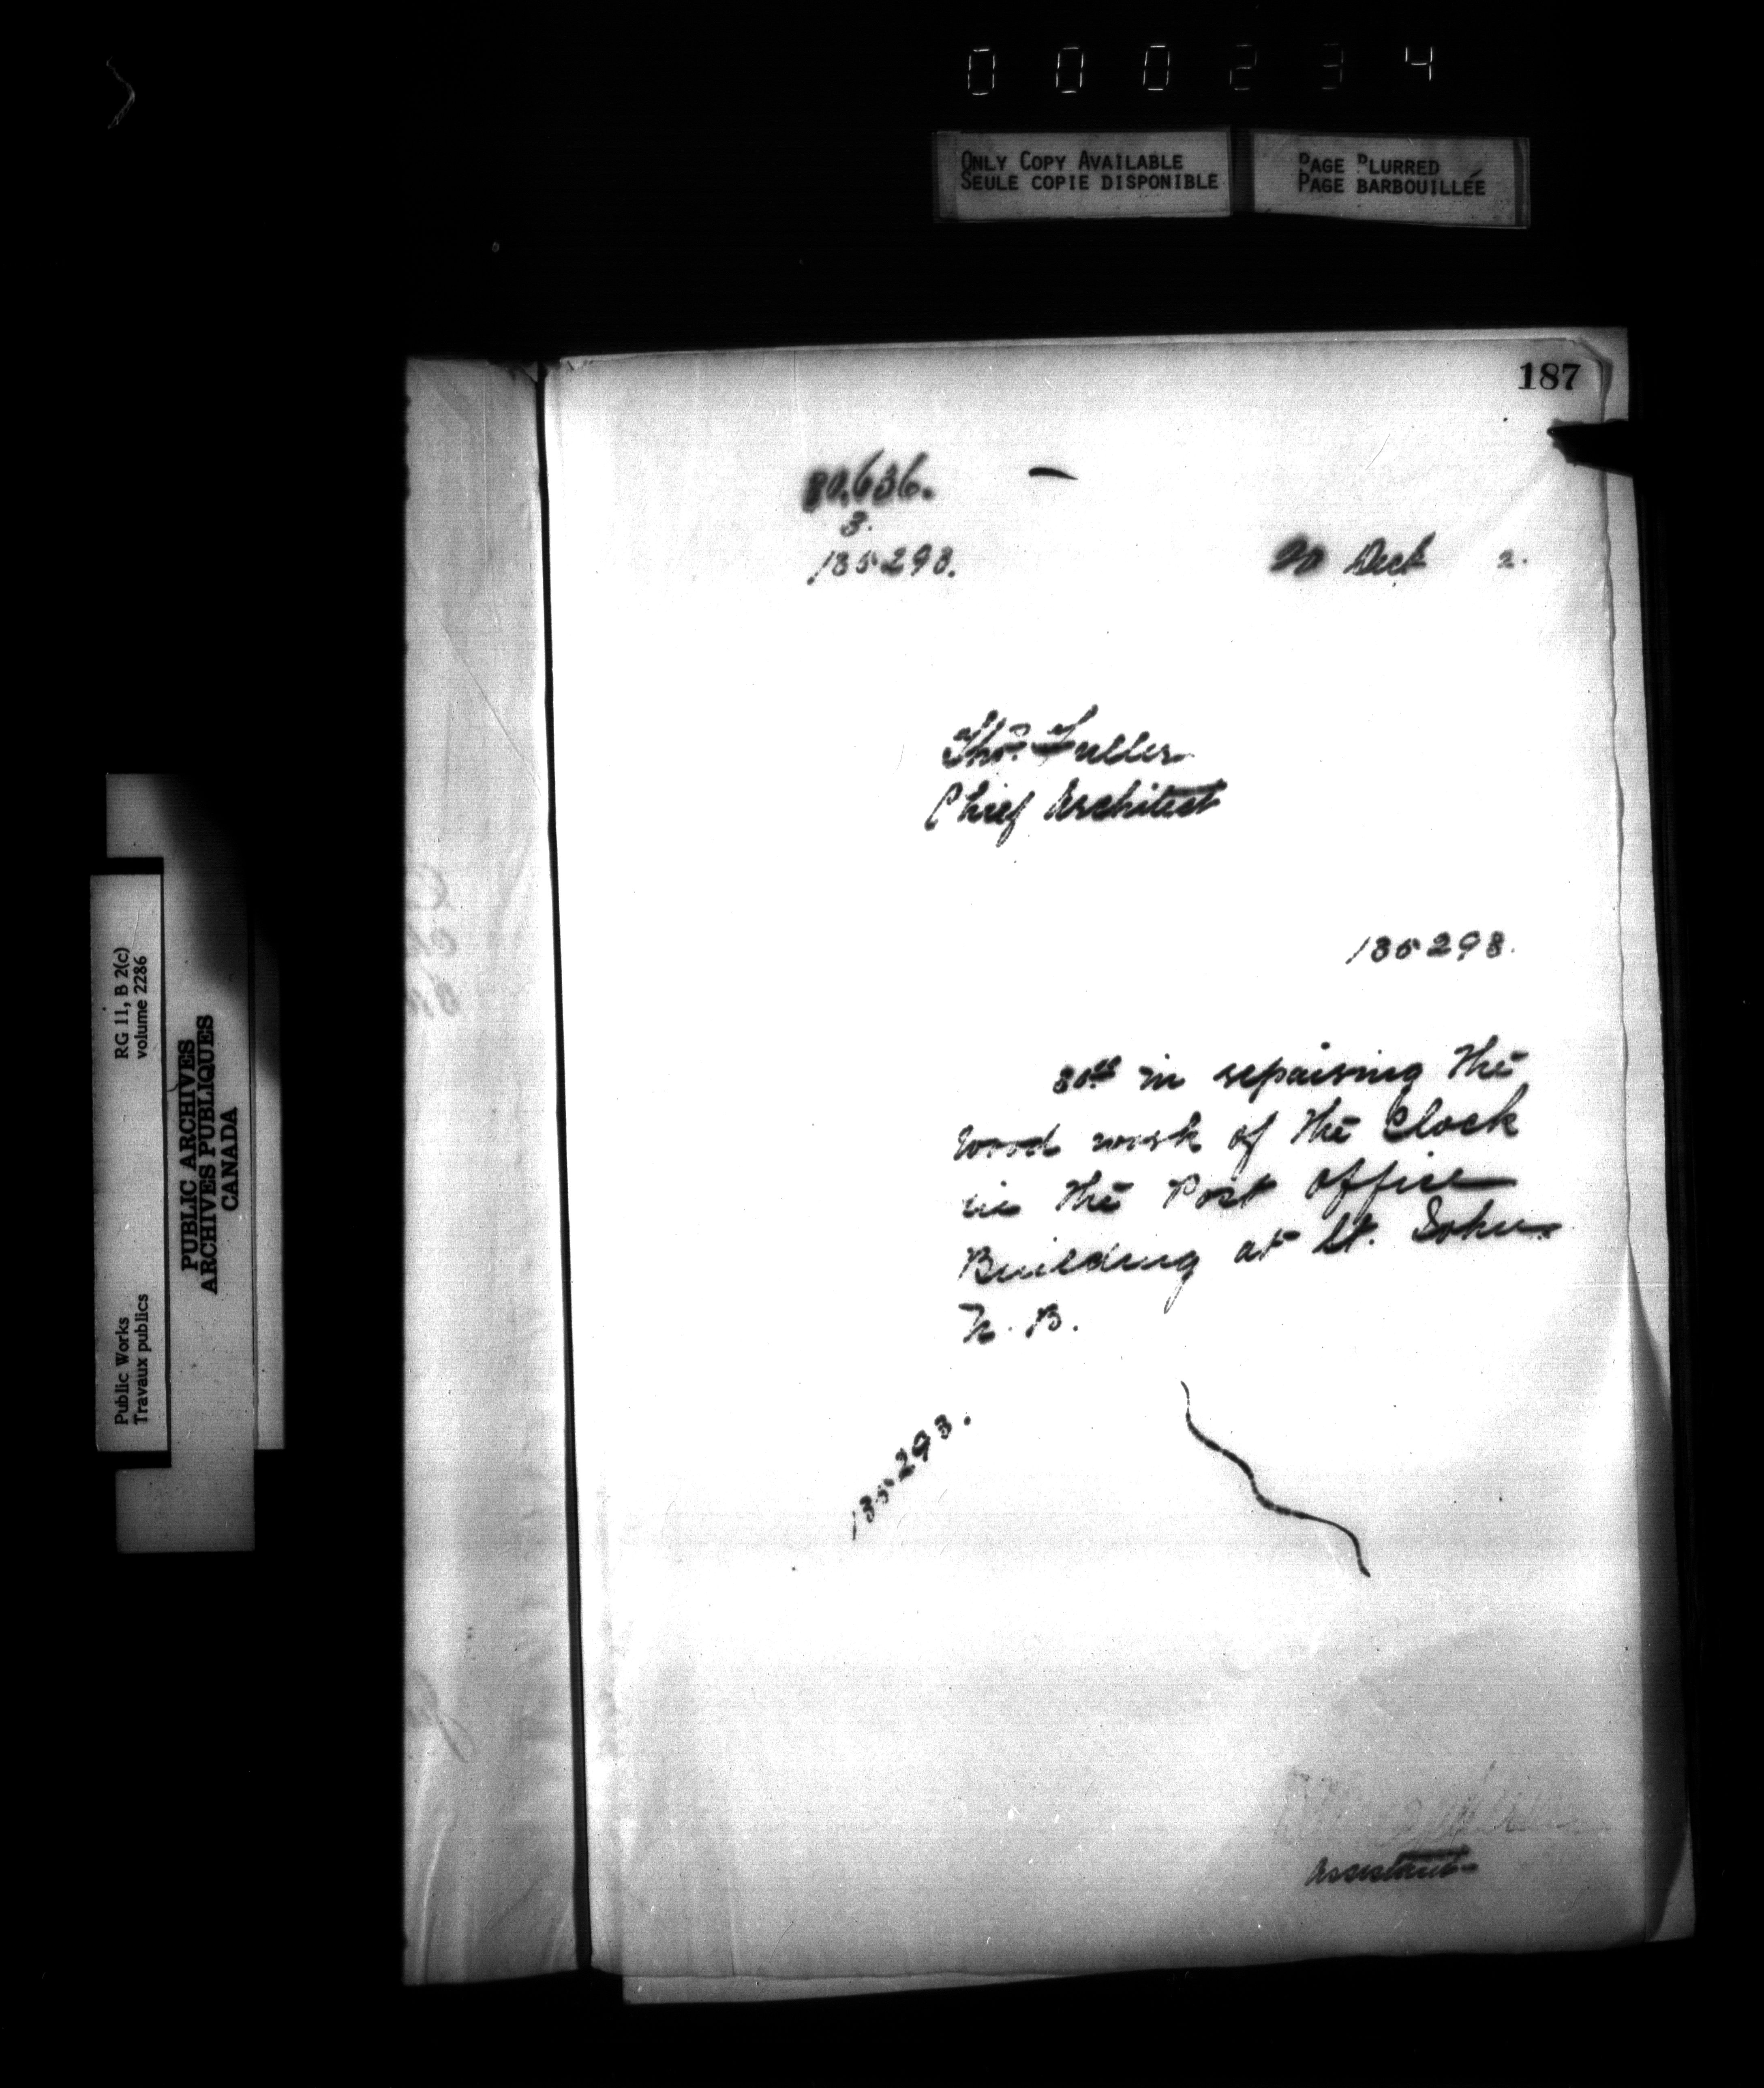 000234
ONLY COPY AVAILABLE
SEULE COPIE DISPONIBLE
PAGE BLURRED
PAGE BARBOUILLÉE
187
80,636.
3.
135293.
20 Dect 2.
Thos. Fuller
Chief Architect
135293.
in repairing the
wood work of the Clock
in the Post Office
Building at St. John
N. B.
135293.
Assistant
RG 11, B 2(c)
volume 2286
Public Works
Travaux publics
PUBLIC ARCHIVES
ARCHIVES PUBLIQUES
CANADA